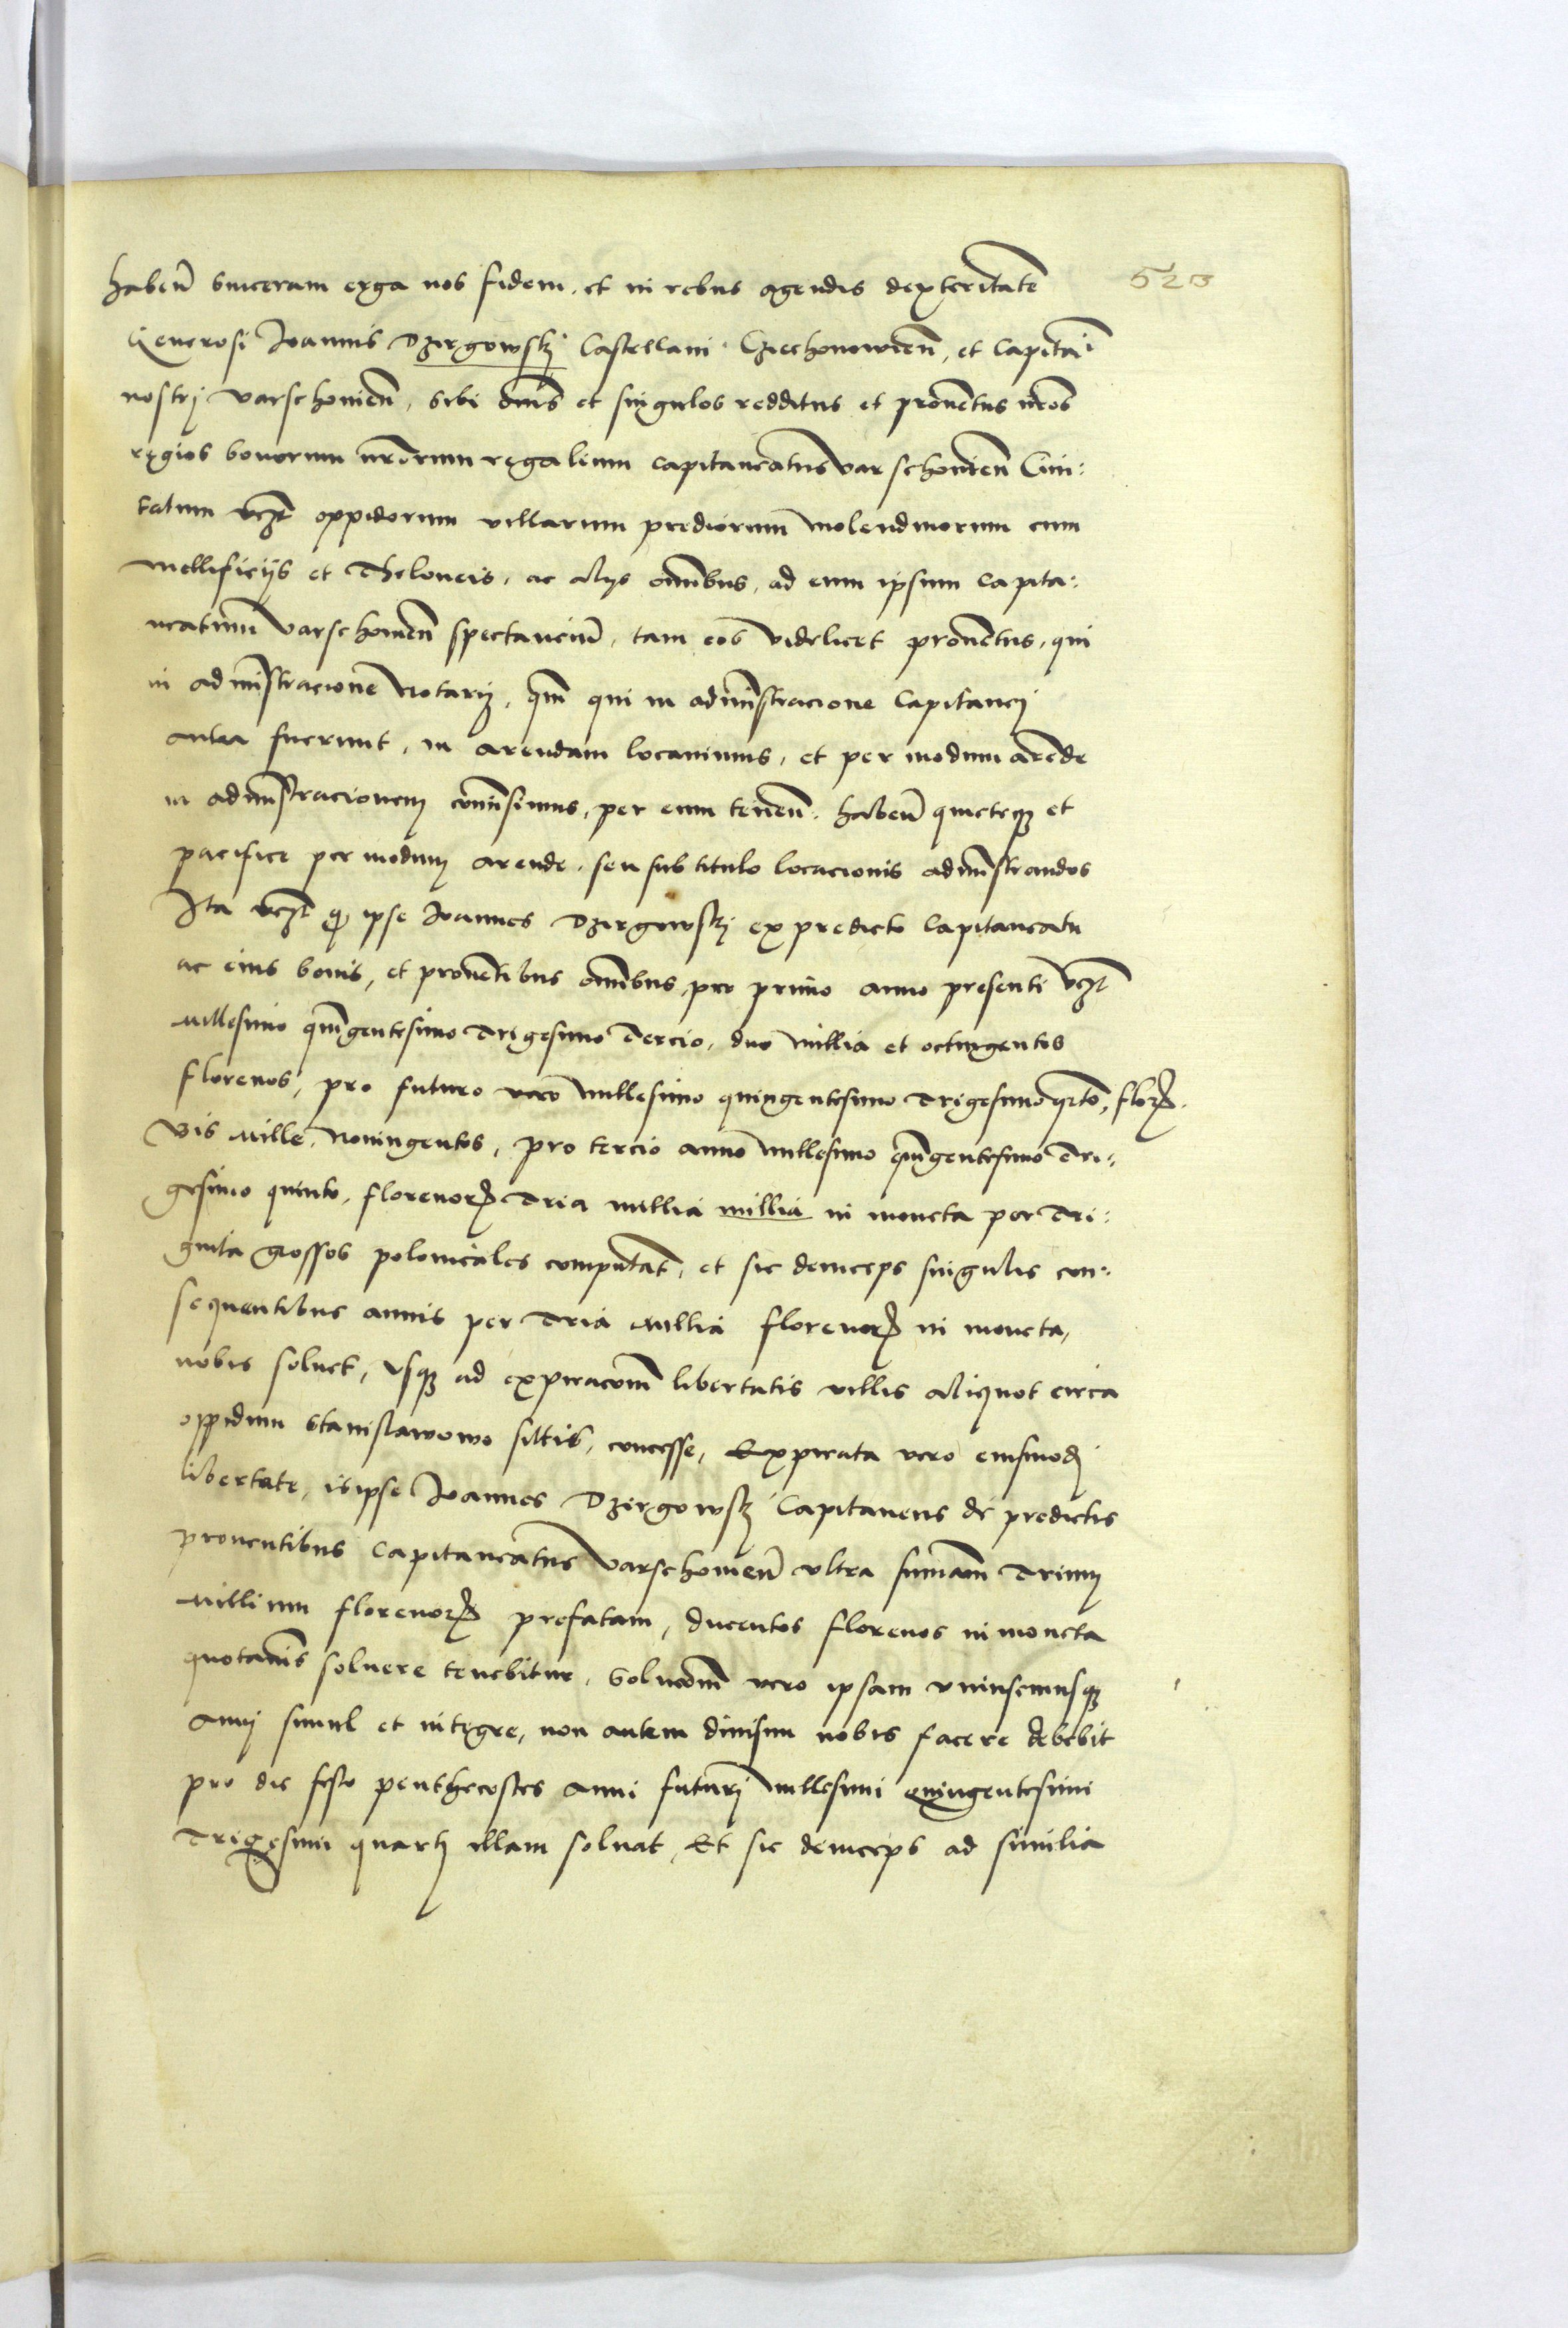 habeñ sinceram erga nos fidem, et in rebus agendis dexteritatẽ
Generosi Joannis Dzirgowskj Castellani Cziechonowieñ, et Capitãi
nostrj varschovieñ, sibi om̃s et singulos redditus et proventus nr̃os
regios bonorum nr̃orum regalium capitaneatus varschovieñ Civi:
tatum vcz̃t oppidorum villarum prediorum molendinorum cum
mellificijs et Theloneis, ac alijs om̃ibus, ad eum ipsum capita:
neatum̃ varschovieñ spectanciũ, tam eos videlicet proventus, qui
in administracione Notarij, qm̃ qui in adm̃istracione Capitanej
antea fuerunt, in arendam locavimus, et per modum arẽde
in adm̃istracionem com̃isimus, per eum teneñ. habeñ quieteqȝ et
pacifice per modum arende, seu sub titulo locacionis adm̃istrandos
Ita vcz̃t qꝫ ipse Joannes Dzirgowskj ex predicto Capitaneatu
ac eius bonis, et proventibus om̃ibus, pro primo anno presenti vcz̃t
Millesimo quĩgentesimo Trigesimo Tercio, duo millia et octingentos
florenos, pro futuro vero millesimo quingentesimo Trigesimo qrtõ, florꝝ
Bis Mille Noningentos, pro tercio anno millesimo quĩgentesimo Tri:
gesimo quinto, florenorꝝ Tria millia millia in moneta per Tri:
ginta grossos polonicales computañ, et sic deinceps singulis con:
sequentibus annis per Tria Millia florenorꝝ in moneta,
nobis solvet, usqȝ ad expiracom̃ libertatis villis aliquot circa
oppidum Stanislawowo sittis, concesse, Expirata vero eiusmodj
libertate, is ipse Joannes Dzirgowskj Capitaneus de predictis
proventibus Capitaneatus varschovieñ ultra sum̃am Trium
Millium florenorꝝ prefatam, ducentos florenos in moneta
quotañis solvere tenebitur, Solucom̃ vero ipsam uniuscuiusqȝ
Annj simul et integre, non autem divisim nobis facere debebit
pro die festo penthecostes Anni futurj millesimi quingentesimi
Trigesimi quartj illam solvat, Et sic deinceps ad similia